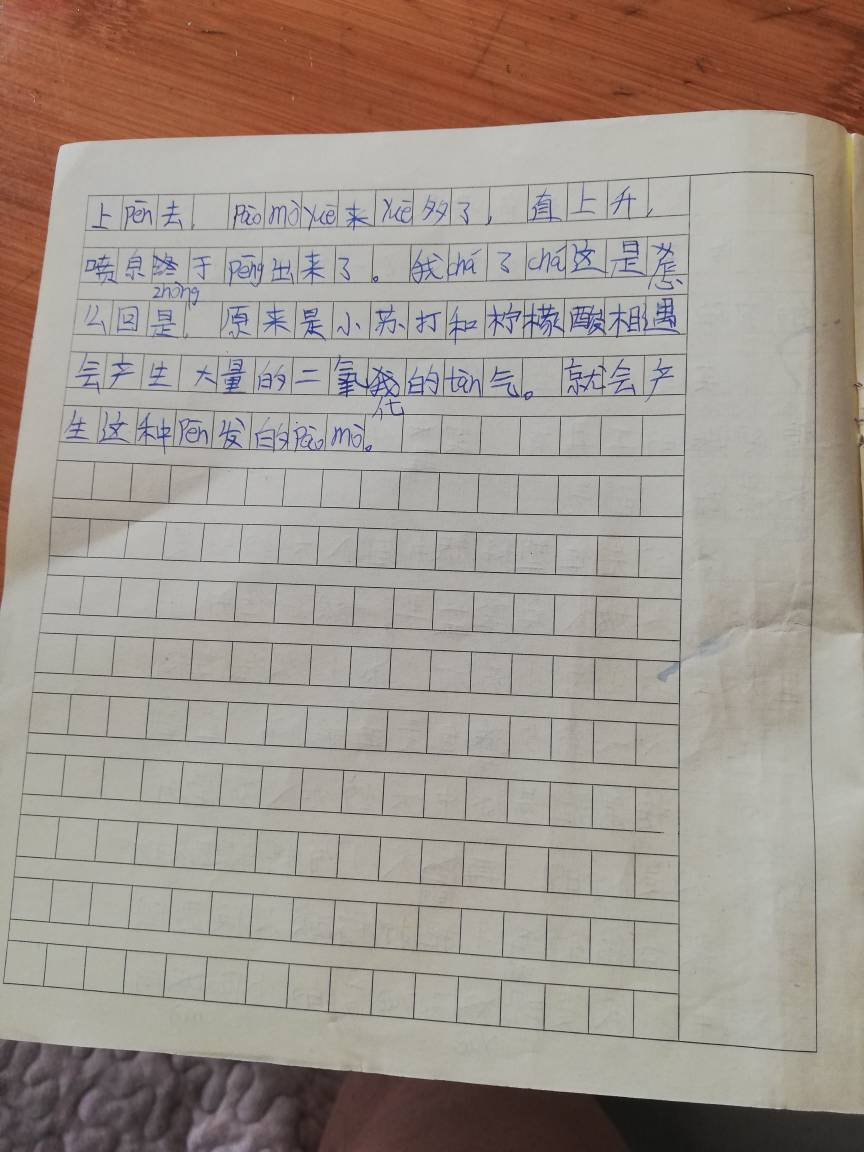 上pēn去，pào mò yuè来yuè多了，直上升，
喷泉zhōng于pēng出来了。我chá了chá这是怎
么回是，原来是小苏打和柠檬酸相遇
会产生大量的二氧代的tàn气。就会产
生这种pēn发的pào mò。